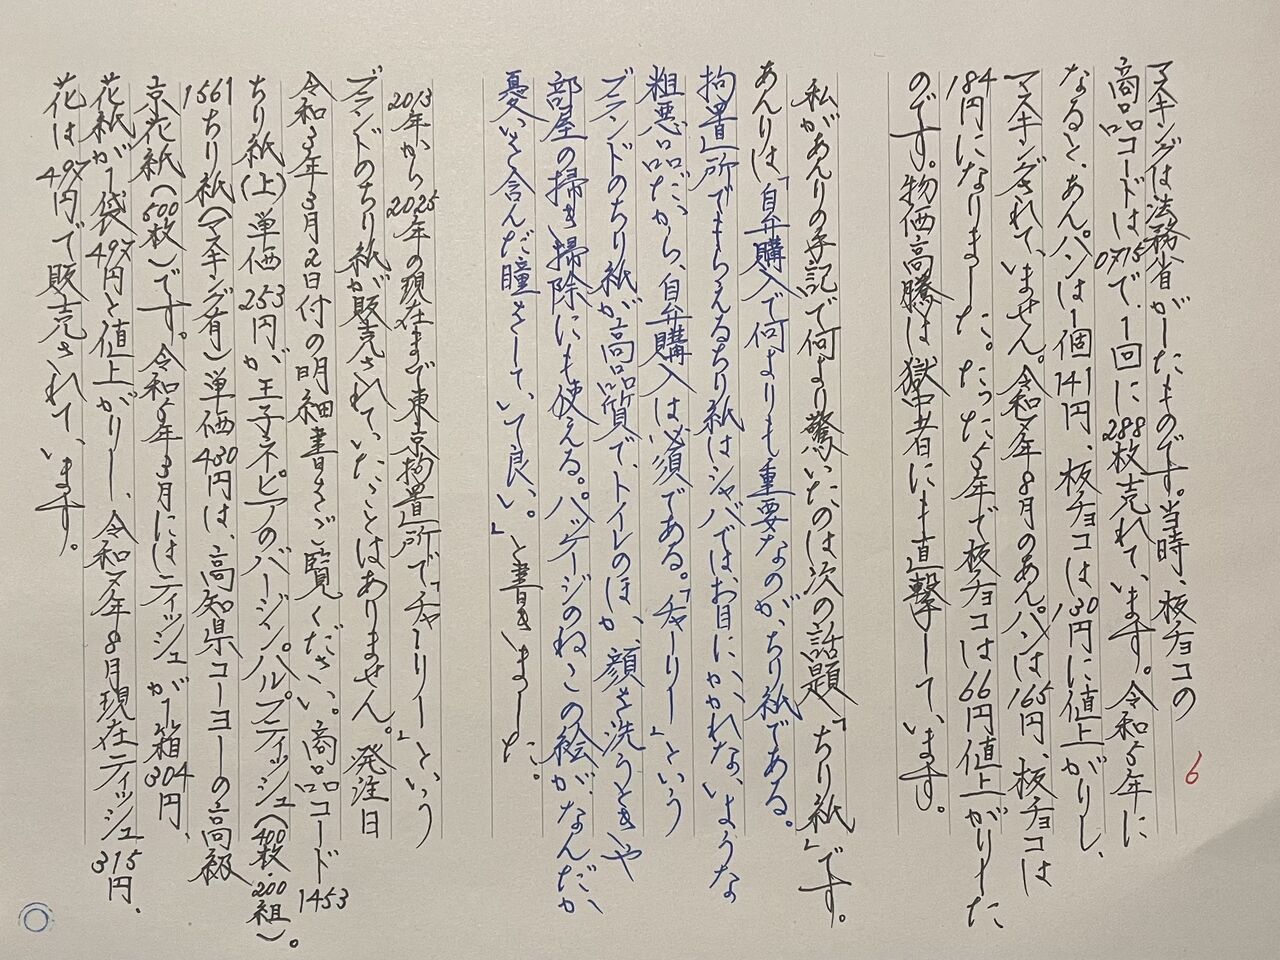 6
マスキングは法務省がしたものです。当時、板チョコの
商品コードは0715で、1回に288枚売れています。令和5年に
なると、あんパンは1個141円、板チョコは130円に値上がりし、
マスキングされていません。令和7年8月のあんパンは165円、板チョコは
184円になりました。たった5年で板チョコは66円値上がりした
のです。物価高騰は獄中者にも直撃しています。
私があんりの手記で何より驚いたのは次の話題、「ちり紙」です。
あんりは「自弁購入で何よりも重要なのが、ちり紙である。
拘置所でもらえるちり紙はシャバではお目にかかれないような
粗悪品だから、自弁購入は必須である。「チャーリー」という
ブランドのちり紙が高品質で、トイレのほか、顔を洗うときや
部屋の掃き掃除にも使える。パッケージのねこの絵が、なんだか
憂いを含んだ瞳をしていて良い。」と書きました。
2013年から2025年の現在まで東京拘置所で「チャーリー」という
ブランドのちり紙が販売されていたことはありません。発注日
令和3年3月2日付の明細書をご覧ください。商品コード1453
ちり紙(上)単価253円が王子ネピアのバージンパルプティッシュ(400枚・200組)。
1561ちり紙(マスキング有)単価430円は、高知県コーヨーの高級
京花紙(500枚)です。令和5年3月にはティッシュが1箱304円、
花紙が1袋497円と値上がりし、令和7年8月現在ティッシュ315円、
花は497円で販売されています。